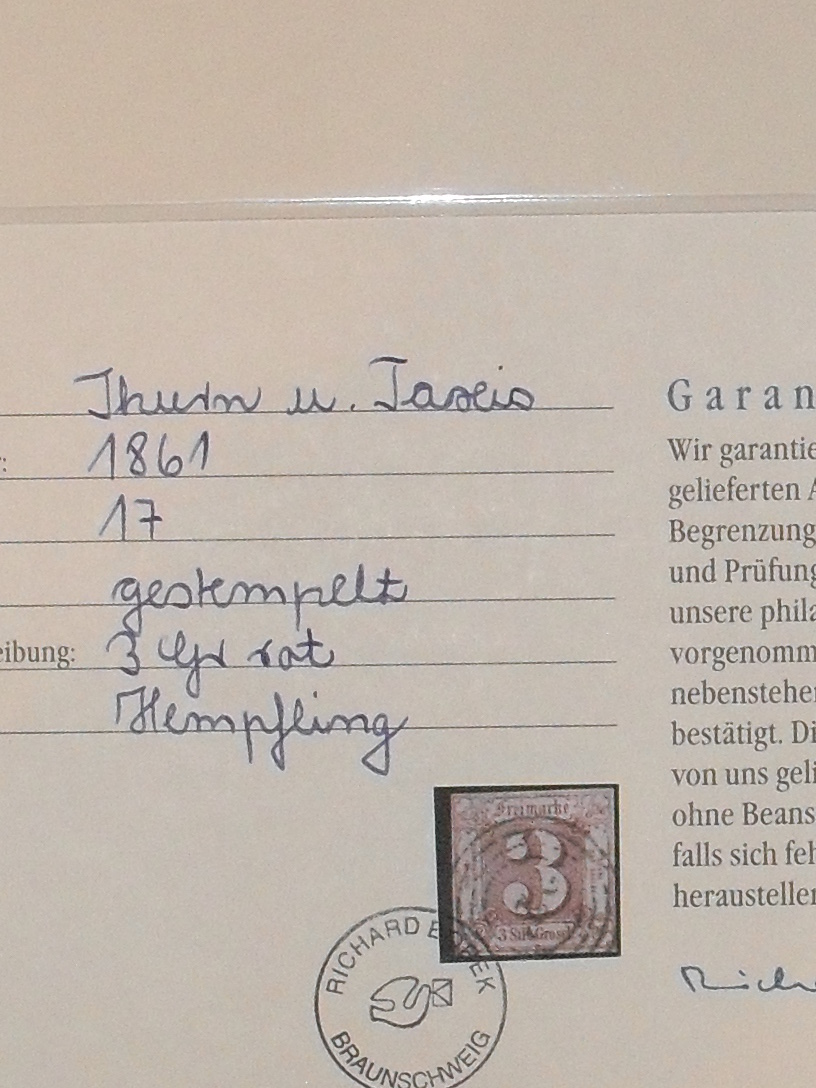 Thurn u. Taxis
1861
17
gestempelt
eibung: 3 Gr rot
Hempfling
Freimarke
3
3 Silb. Grosch
RICHARD
BRAUNSCHWEIG
Garan
Wir garantie
gelieferten A
Begrenzung
und Prüfung
unsere phila
vorgenomm
nebenstehen
bestätigt. Di
von uns geli
ohne Beans
falls sich feh
herausteller